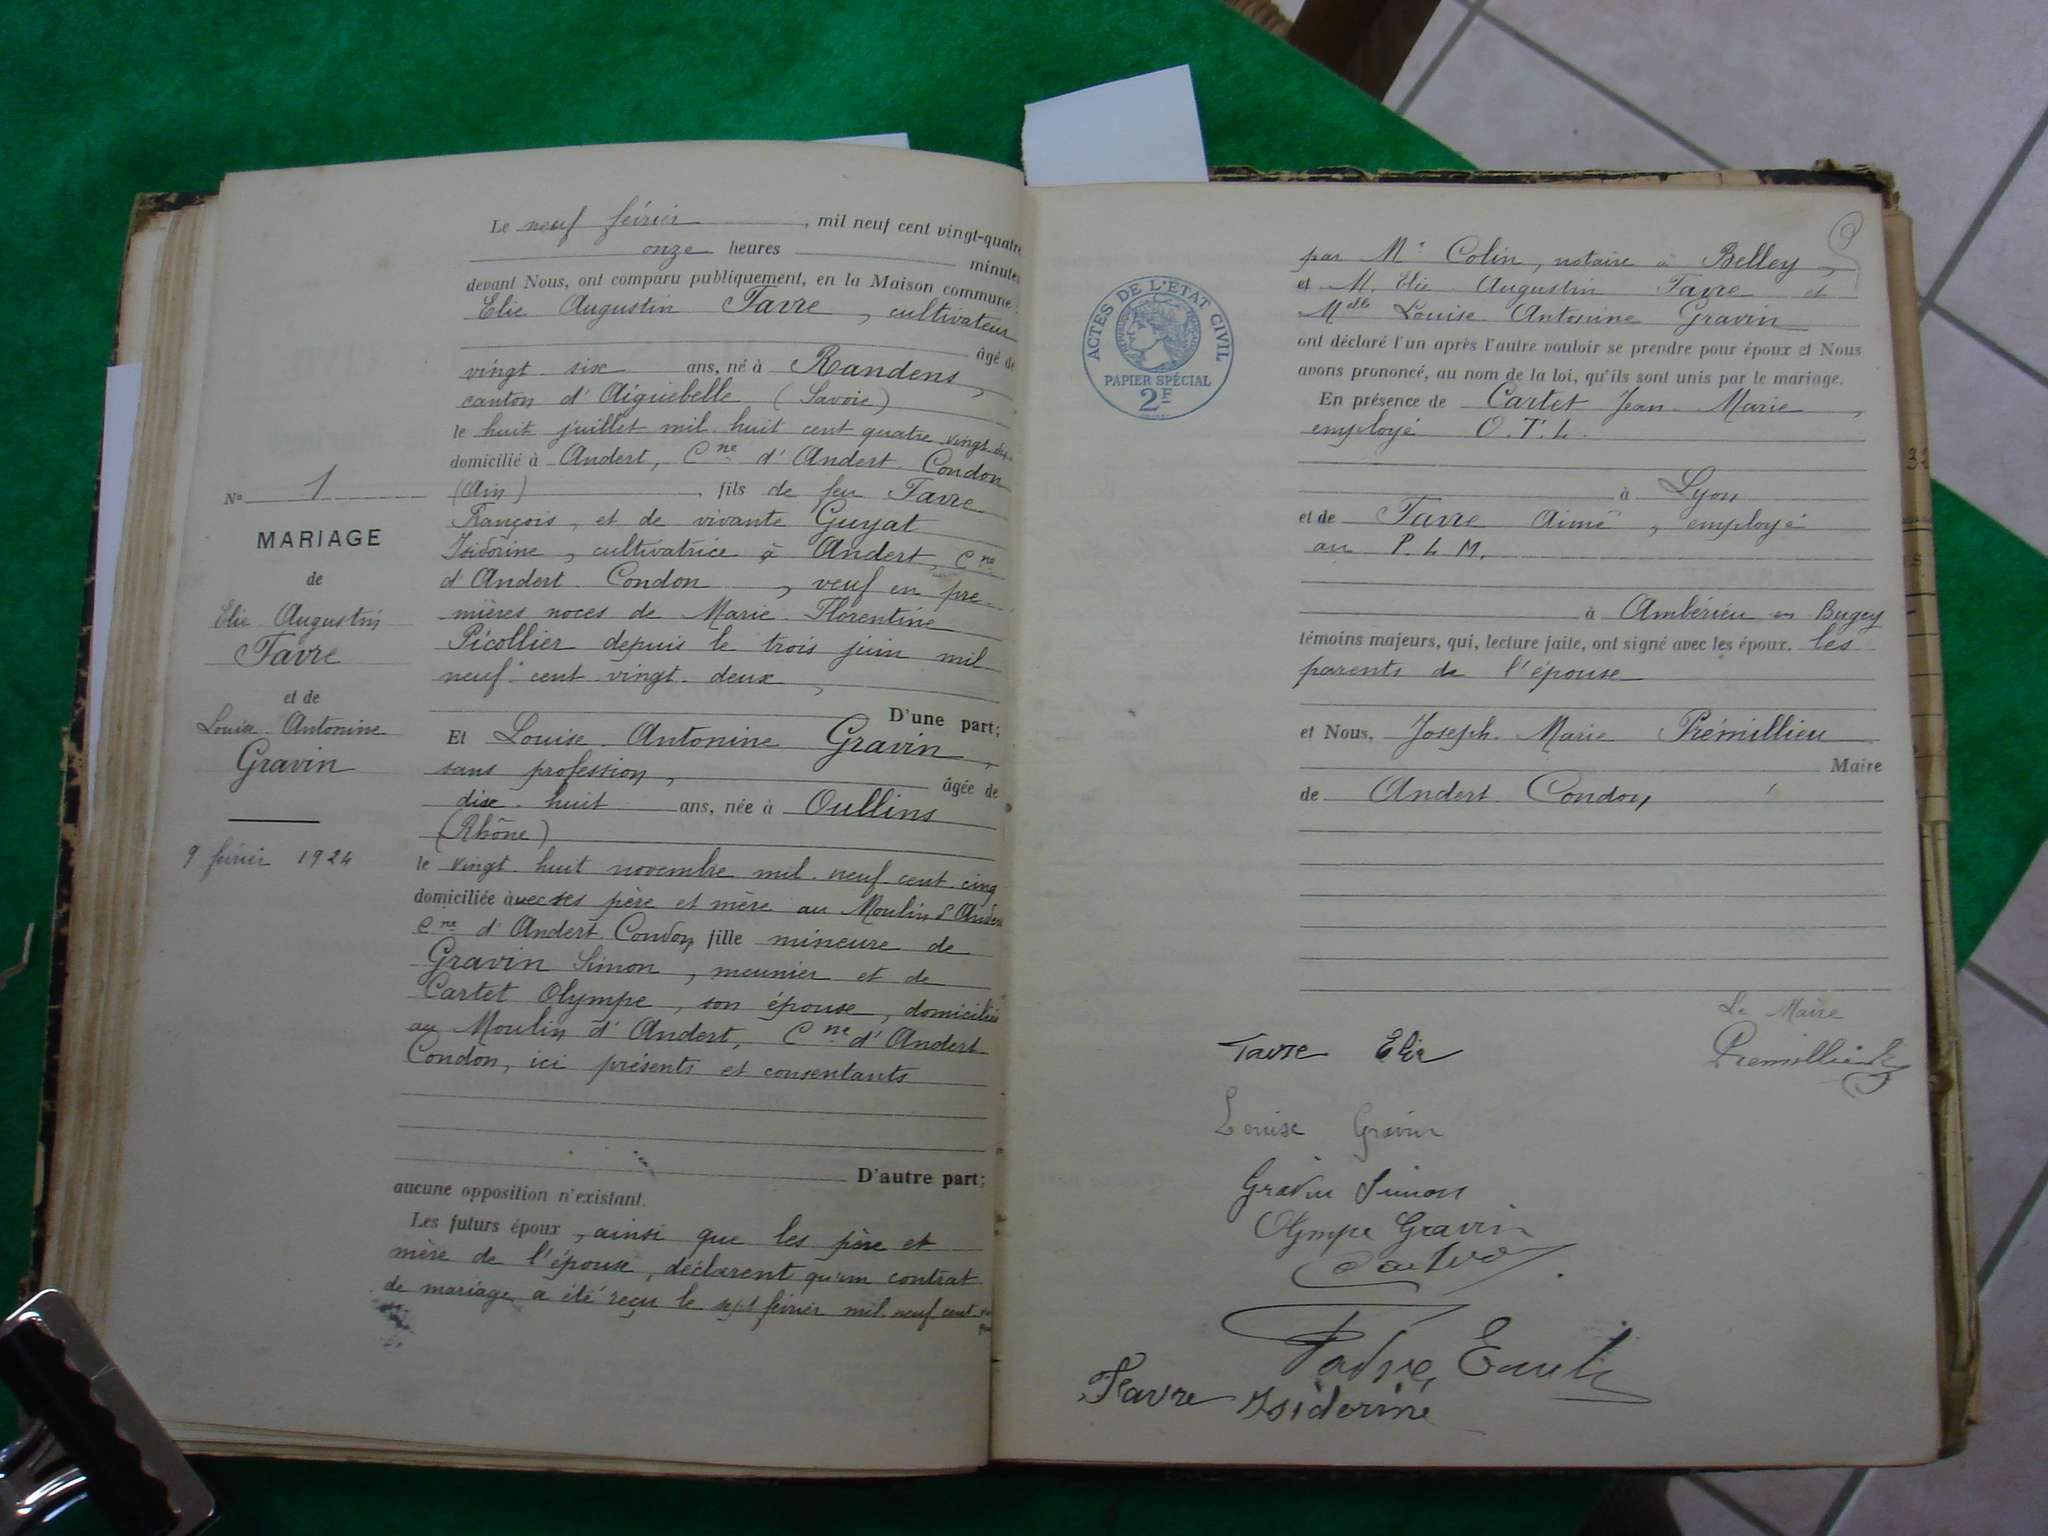 Le neuf février, mil neuf cent vingt-quatre
onze heures minutes
devant Nous, ont comparu publiquement, en la Maison commune:
Elie Augustin Favre, cultivateur
âgé de
vingt six ans, né à Randens,
canton d'Aiguebelle (Savoie)
le huit juillet mil huit cent quatre vingt dix
domicilié à Andert, Cne d'Andert-Condon
(Ain), fils de feu Favre
François, et de vivante Guyat
Isidorine, cultivatrice à Andert, Cne
d'Andert Condon, veuf en pre-
mières noces de Marie Florentine
Picollier depuis le trois juin mil
neuf cent vingt deux,
D'une part;
Et Louise Antonine Gravin,
sans profession, âgée de
dix huit ans, née à Oullins
(Rhône)
le vingt huit novembre mil neuf cent cinq
domiciliée avec ses père et mère au Moulin d'Andert
Cne d'Andert Condon, fille mineure de
Gravin Simon, meunier et de
Cartet Olympe, son épouse, domiciliés
au Moulin d'Andert, Cne d'Andert
Condon, ici présents et consentants
D'autre part;
aucune opposition n'existant.
Les futurs époux, ainsi que les père et
mère de l'épouse, déclarent qu'un contrat
de mariage a été reçu le sept février mil neuf cent
No 1
MARIAGE
de
Elie Augustin
Favre
et de
Louise Antonine
Gravin
9 février 1924
ACTES DE L'ÉTAT CIVIL
PAPIER SPÉCIAL
2F
par Me Colin, notaire à Belley,
et M. Elie Augustin Favre et
Mdlle Louise Antonine Gravin
ont déclaré l'un après l'autre vouloir se prendre pour époux et Nous
avons prononcé, au nom de la loi, qu'ils sont unis par le mariage.
En présence de Cartet Jean-Marie,
employé O.T.L.
à Lyon
et de Favre Aimé, employé
au P.L.M.
à Ambérieu en Bugey
témoins majeurs, qui, lecture faite, ont signé avec les époux, les
parents de l'épouse
et Nous, Joseph Marie Prémillieu
Maire
de Andert Condon
Le Maire
Premillieu
Favre Elie
Louise Gravin
Gravin Simon
Olympe Gravin
Favre Isidorine
32